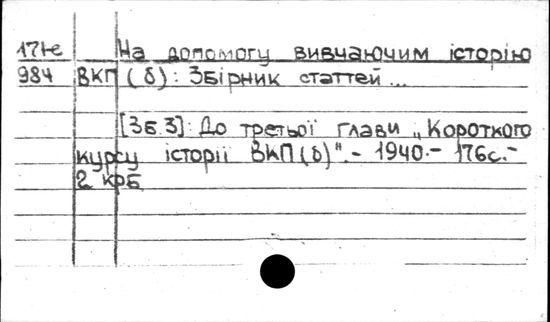 17Не На допомогу вивчаючим історію
984 ВКП(б): Збірник статтей...
[Зб.3]: До третьої глави „Короткого
курсу історії ВКП(б)".- 1940.- 176с.-
2 крб